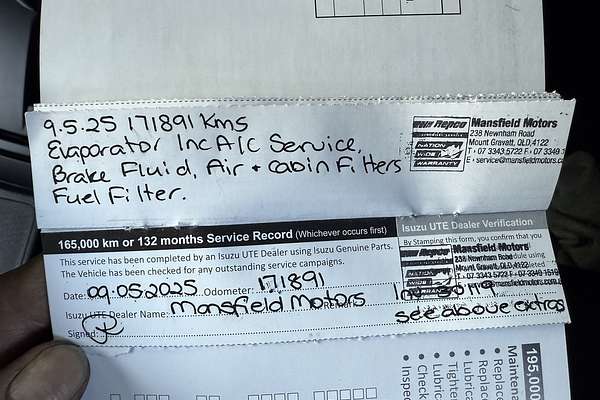 9.5.25 171891 Kms
Evaporator Inc A/C Service,
Brake Fluid, Air + Cabin Filters
Fuel Filter.
Repco
NATION
WIDE
WARRANTY
Mansfield Motors
238 Newnham Road
Mount Gravatt, QLD, 4122
T • 07 3343 5722 F • 07 3349
E • service@mansfieldmotors.c
165,000 km or 132 months Service Record (Whichever occurs first)
Isuzu UTE Dealer Verification
This service has been completed by an Isuzu UTE Dealer using Isuzu Genuine Parts.
The Vehicle has been checked for any outstanding service campaigns.
By Stamping this form, you confirm that you
Mansfield Motors
238 Newnham Road
Mount Gravatt, QLD, 4122
NATION
WIDE
WARRANTY
Date: 09.05.2025 Odometer: 171891
Isuzu UTE Dealer Name: Mansfield Motors
see above extras
Signed:
195,000
Maintena
Replac
Replace
Lubric
Tighte
Lubric
Check
Inspec